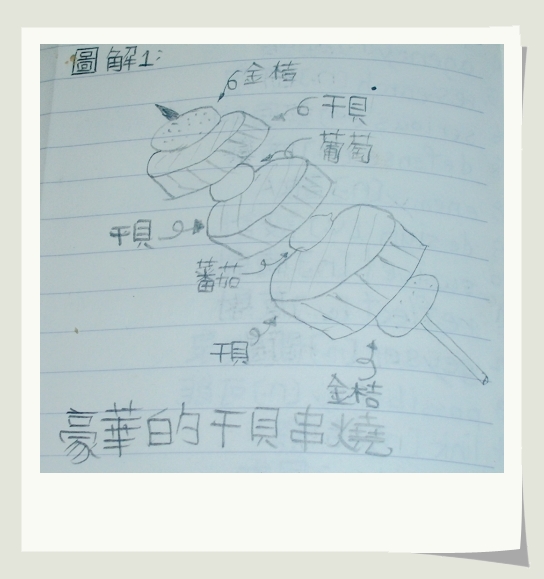 圖解1:
金桔
干貝
葡萄
干貝
蕃茄
干貝
金桔
豪華的干貝串燒